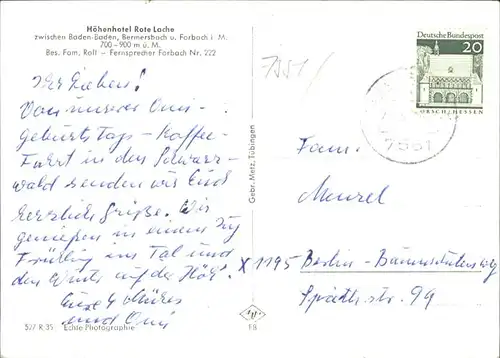 Höhenhotel Rote Lache
zwischen Baden-Baden, Bermersbach u. Forbach i. M.
700-900 m ü. M.
Bes. Fam. Roll - Fernsprecher Forbach Nr. 222
Deutsche Bundespost
20
LORSCH/HESSEN
7551/
7551
Ihr Lieben!
Von unserer Omi-
geburts Tags-Kaffee-
Fahrt in den Schwarz-
wald senden wir Euch
herzlich Grüße. Wir
genießen in einem Zug
Frühling im Tal und
den Winter auf der Höh'.
Eure
und Omi
Gebr. Metz, Tübingen
Fam.
Menzel
X 1195 Berlin - Baumschulenweg
Späthstr. 99
527 R 35 Echte Photographie
18